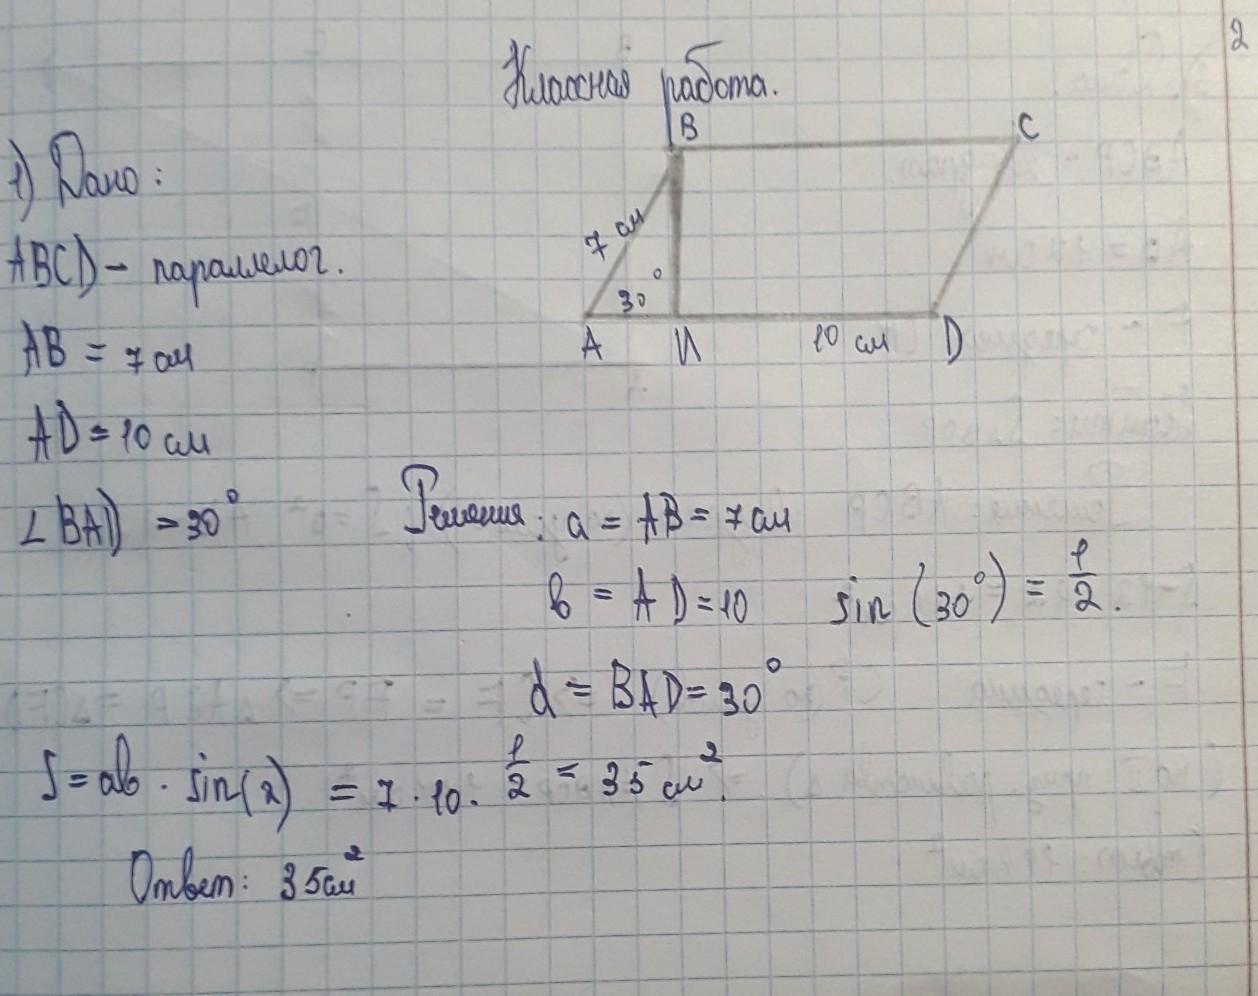 2
Классная работа.
1) Дано:
ABCD – параллелог.
AB = 7 см
AD = 10 см
∠BAD = 30°
B
C
7 см
30°
A
И
10 см
D
Решения: a = AB = 7 см
b = AD = 10 sin (30°) = 1/2.
d = BAD = 30°
S = ab · sin(α) = 7 · 10 · 1/2 = 35 см².
Ответ: 35 см²